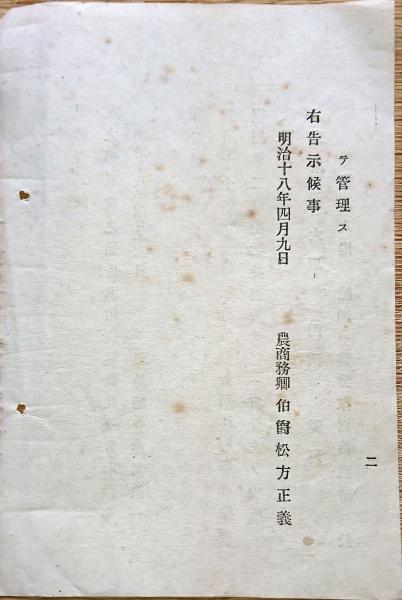 テ管理ス
右告示候事
明治十八年四月九日
農商務卿伯爵松方正義
二